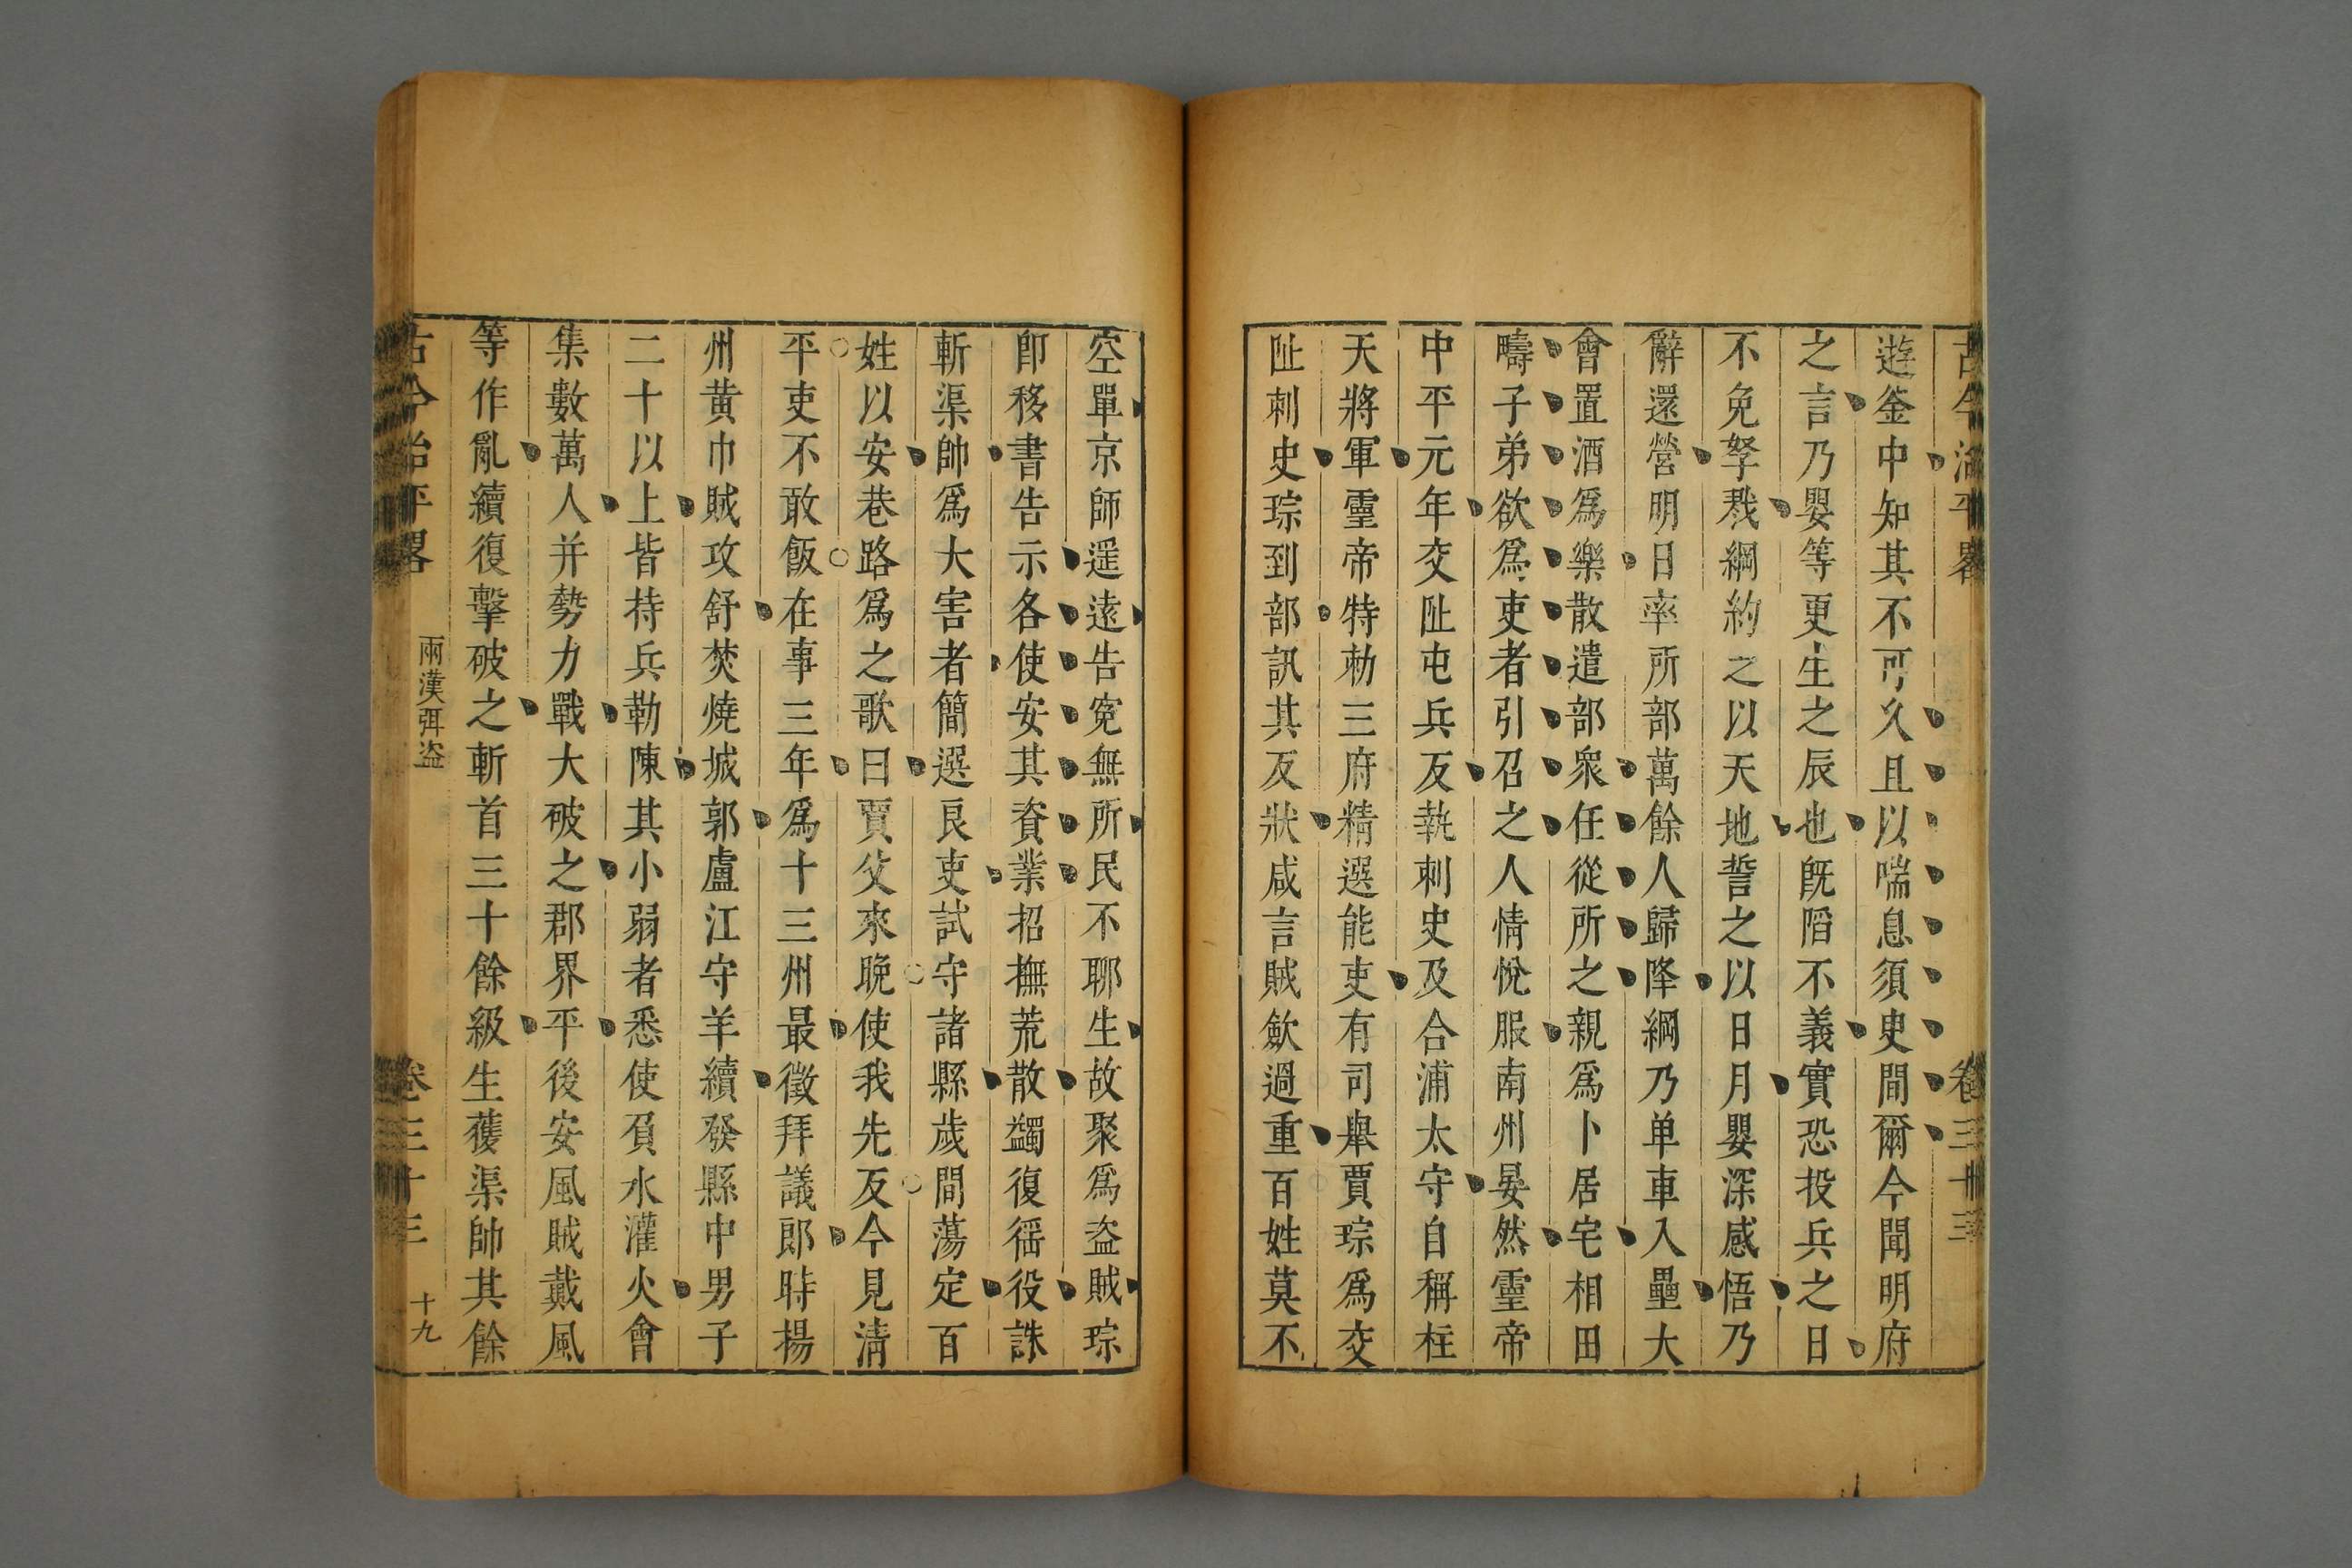 古今治平畧 卷三十三
遊釜中知其不可久且以喘息須臾間爾今聞明府
之言乃嬰等更生之辰也旣陷不義實恐投兵之日
不免孥戮綱約之以天地誓之以日月嬰深感悟乃
辭還營明日率所部萬餘人歸降綱乃单車入壘大
會置酒爲樂散遣部衆任從所之親爲卜居宅相田
疇子弟欲爲吏者引召之人情悅服南州晏然靈帝
中平元年交阯屯兵反執刺史及合浦太守自稱柱
天將軍靈帝特勑三府精選能吏有司舉賈琮爲交
阯刺史琮到部訊其反狀咸言賊歛過重百姓莫不
空單京師遥遠告寃無所民不聊生故聚爲盗賊琮
卽移書告示各使安其資業招撫荒散蠲復徭役誅
斬渠帥爲大害者簡選良吏試守諸縣歲間蕩定百
姓以安巷路爲之歌曰賈父來晚使我先反今見淸
平吏不敢飯在事三年爲十三州最徵拜議郎時揚
州黄巾賊攻舒焚燒城郭盧江守羊續發縣中男子
二十以上皆持兵勒陳其小弱者悉使負水灌火會
集數萬人并勢力戰大破之郡界平後安風賊戴風
等作亂續復擊破之斬首三十餘級生獲渠帥其餘
古今治平畧 兩漢弭盗 卷三十三 十九